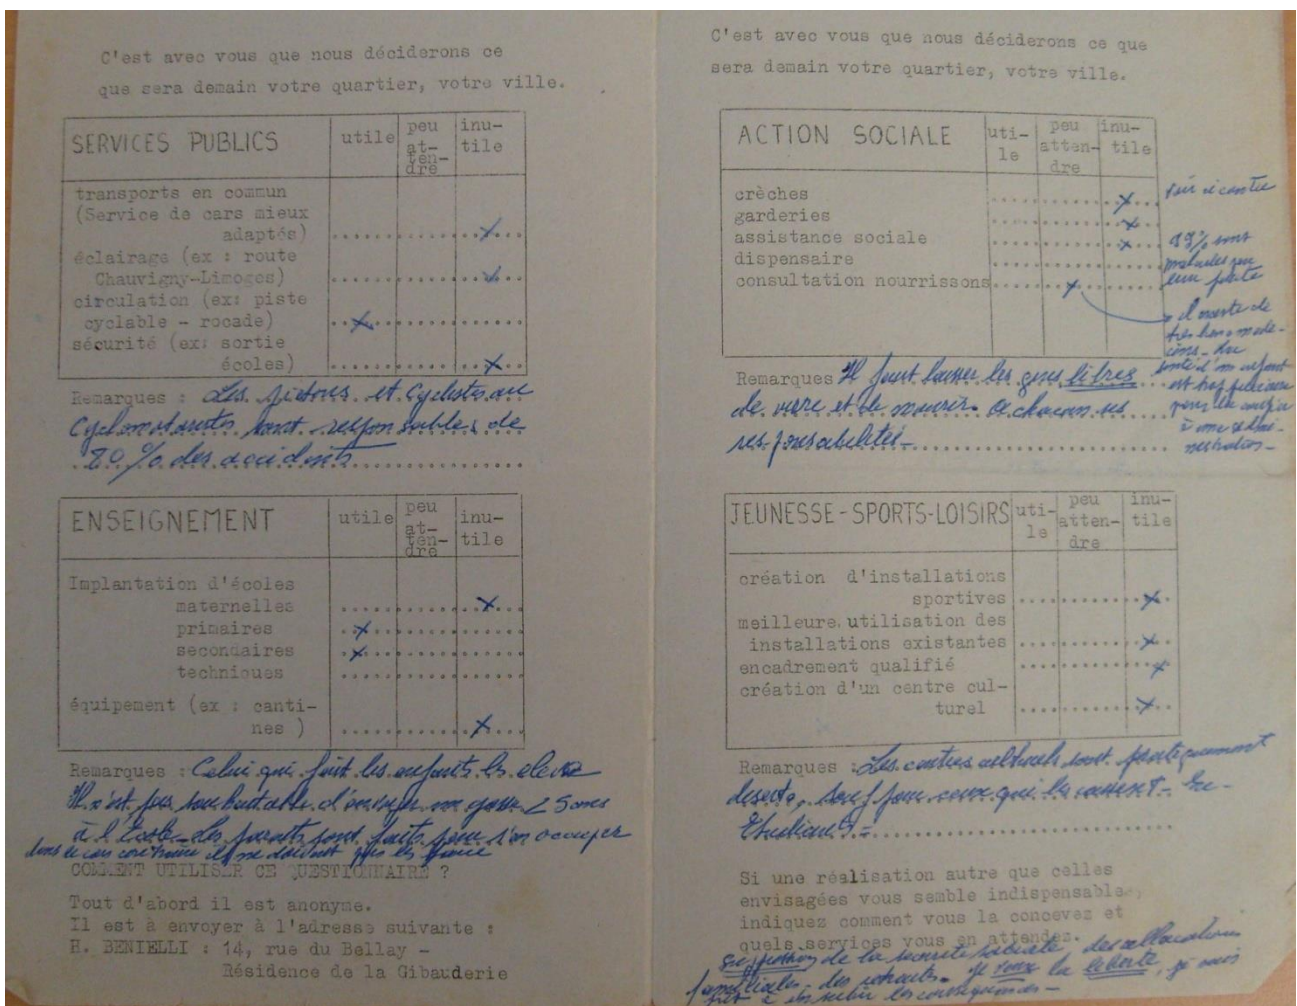 C'est avec vous que nous déciderons ce
que sera demain votre quartier, votre ville.
SERVICES PUBLICS
utile
peu
at-
ten-
dre
inu-
tile
transports en commun
(Service de cars mieux
adaptés)
éclairage (ex : route
Chauvigny-Limoges)
circulation (ex: piste
cyclable - rocade)
sécurité (ex: sortie
écoles)
Remarques : Les piétons et Cyclistes ou
Cyclomotoristes sont responsables de
80 % des accidents
ENSEIGNEMENT
utile
peu
at-
ten-
dre
inu-
tile
Implantation d'écoles
maternelles
primaires
secondaires
techniques
équipement (ex : canti-
nes )
Remarques : Celui qui fait les enfants les élève
Il n'est pas souhaitable d'envoyer un gosse 25 ans
à l'Ecole. Les parents sont faits pour s'en occuper
dans le cas contraire ils ne doivent pas les faire
COMMENT UTILISER CE QUESTIONNAIRE ?
Tout d'abord il est anonyme.
Il est à envoyer à l'adresse suivante :
H. BENIELLI : 14, rue du Bellay -
Résidence de la Gibauderie
C'est avec vous que nous déciderons ce que
sera demain votre quartier, votre ville.
ACTION SOCIALE
uti-
le
peu
atten-
dre
inu-
tile
crèches
garderies
assistance sociale
dispensaire
consultation nourrissons
voir ci contre
99% sont
malades par
leur faute
Il existe de
très bons méde-
cins - La
santé d'un enfant
est trop précieuse
pour la confier
à une admi-
nistration -
Remarques Il faut laisser les gens libres
de vivre et de mourir. à chacun ses
responsabilités -
JEUNESSE-SPORTS-LOISIRS
uti-
le
peu
atten-
dre
inu-
tile
création d'installations
sportives
meilleure utilisation des
installations existantes
encadrement qualifié
création d'un centre cul-
turel
Remarques : Les centres culturels sont pratiquement
déserts, sauf pour ceux qui les
Si une réalisation autre que celles
envisagées vous semble indispensable,
indiquez comment vous la concevez et
quels services vous en attendez.
suppression de la sécurité sociale des allocations
familiales, des retraites - je veux la liberté, je suis
prêt à en subir les conséquences -